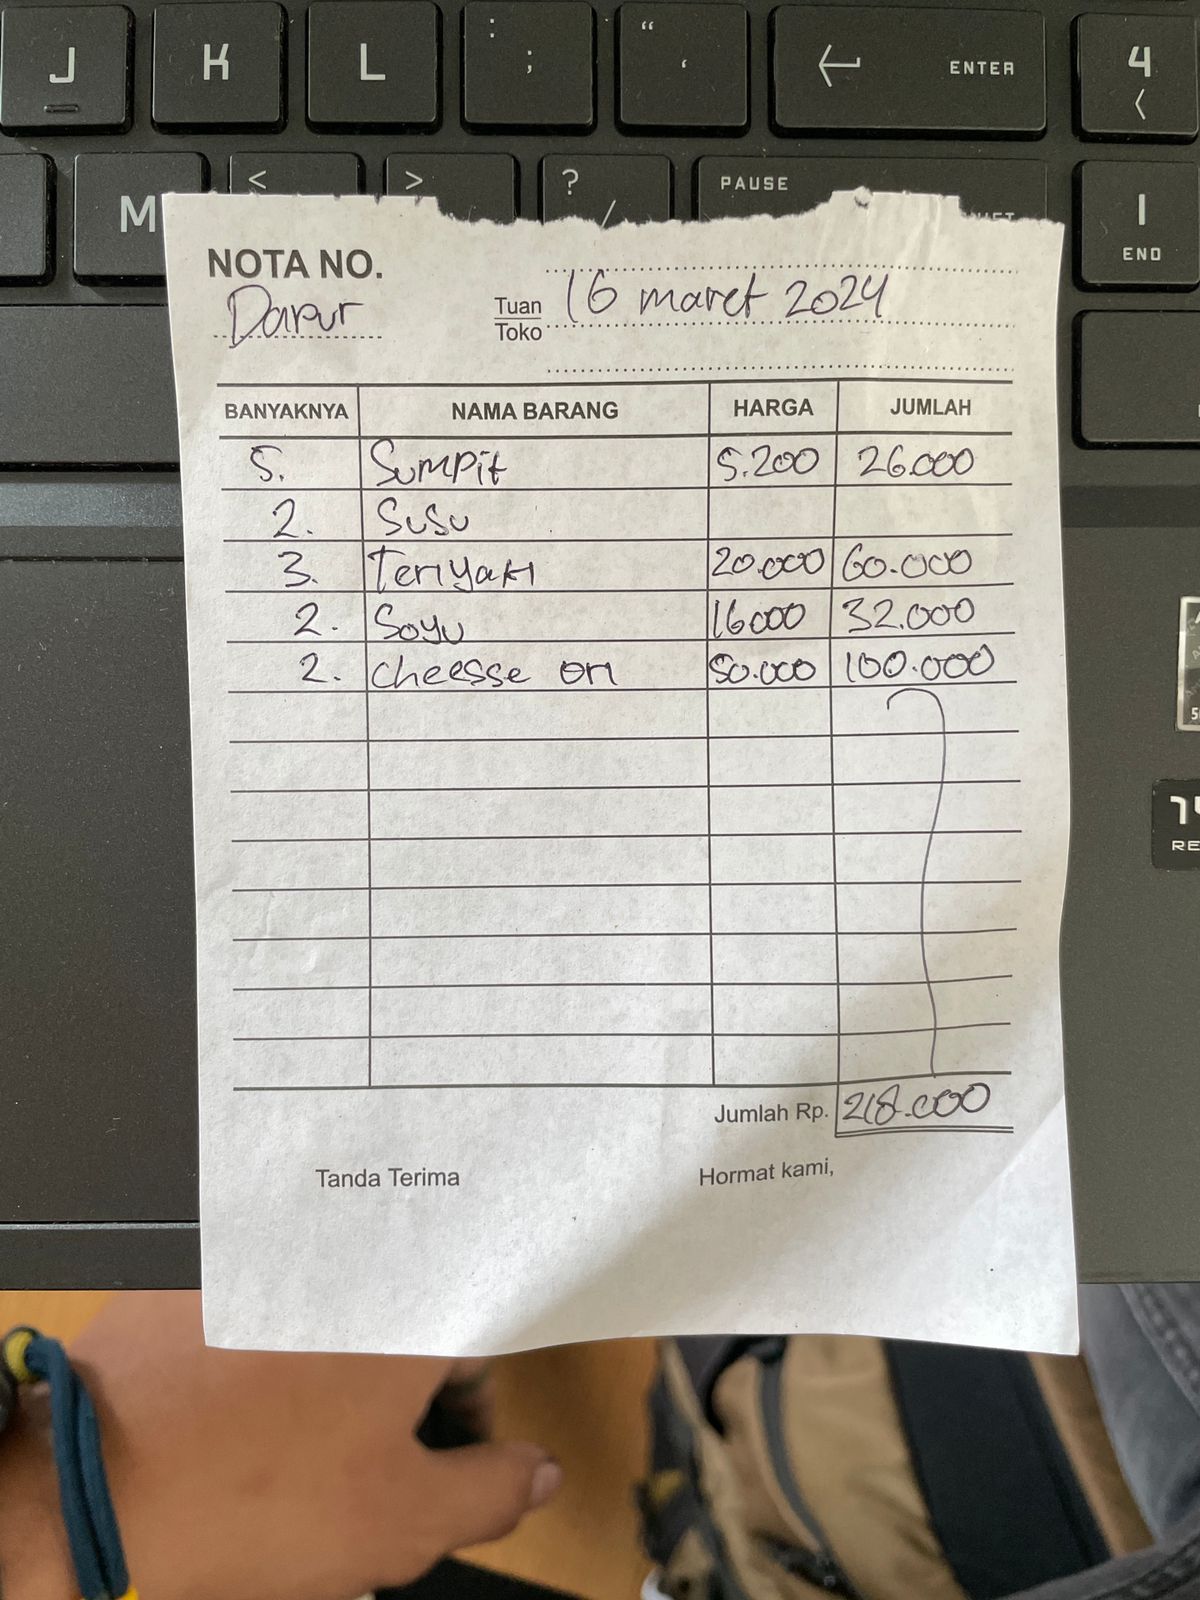 J K L : ; " ' ENTER 4
M < > ? / PAUSE 1
END
NOTA NO.
Dapur
Tuan 16 maret 2024
Toko
BANYAKNYA NAMA BARANG HARGA JUMLAH
5. Sumpit 5.200 26.000
2. Susu
3. Teriyaki 20.000 60.000
2. Soyu 16000 32.000
2. Cheesse ori 50.000 100.000
Jumlah Rp. 218.000
Tanda Terima Hormat kami,